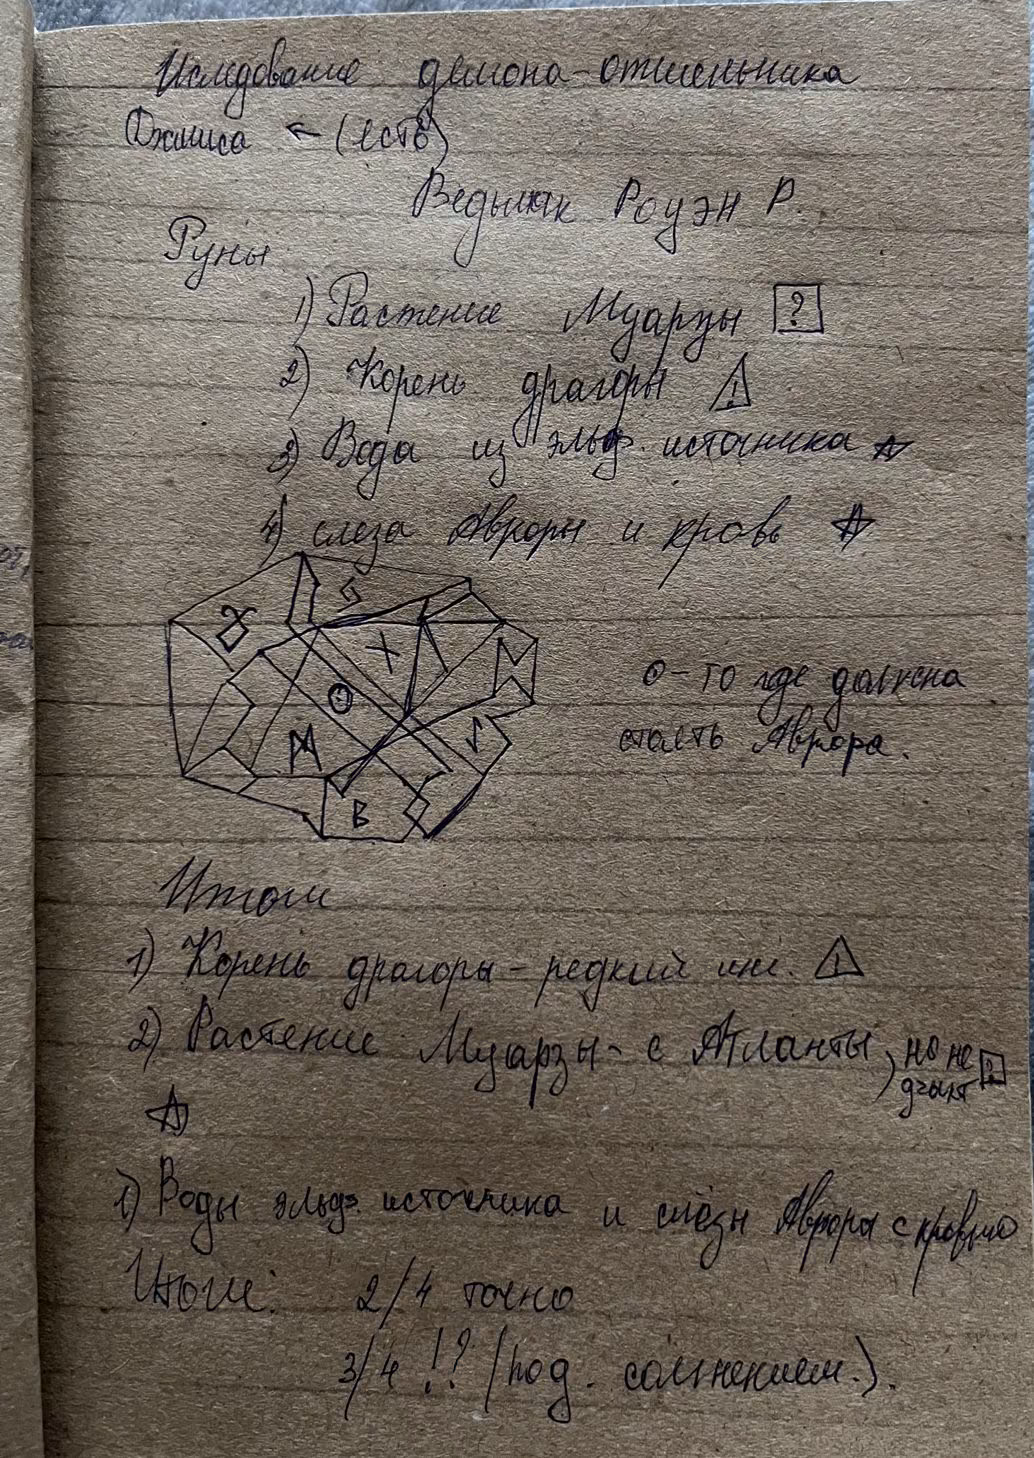 Иследование демона-отшельника
Джмиса ← (есть)
Ведьмак Роуэн Р.
Руны
1) Растение Муарзы ?
2) Корень драгоры !
3) Вода из эльф. источника
4) слеза Авроры и кровь
X
B
о - то где должена
стоять Аврора.
Итоги
1) Корень драгоры - редкий инг. !
2) Растение Муарзы - с Атланты, но не
факт ?
1) Воды эльф. источника и слёзы Авроры с кровью
Итоги: 2/4 точно
3/4 !? (под. сомнением.).